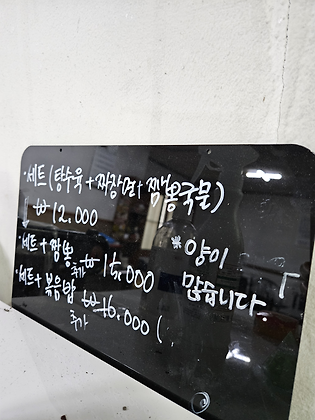 ·세트(탕수육+짜장면+짬뽕국물)
₩12.000
·세트+짬뽕 추가 ₩15.000
·세트+볶음밥 추가 ₩16.000 (
* 양이
많습니다.